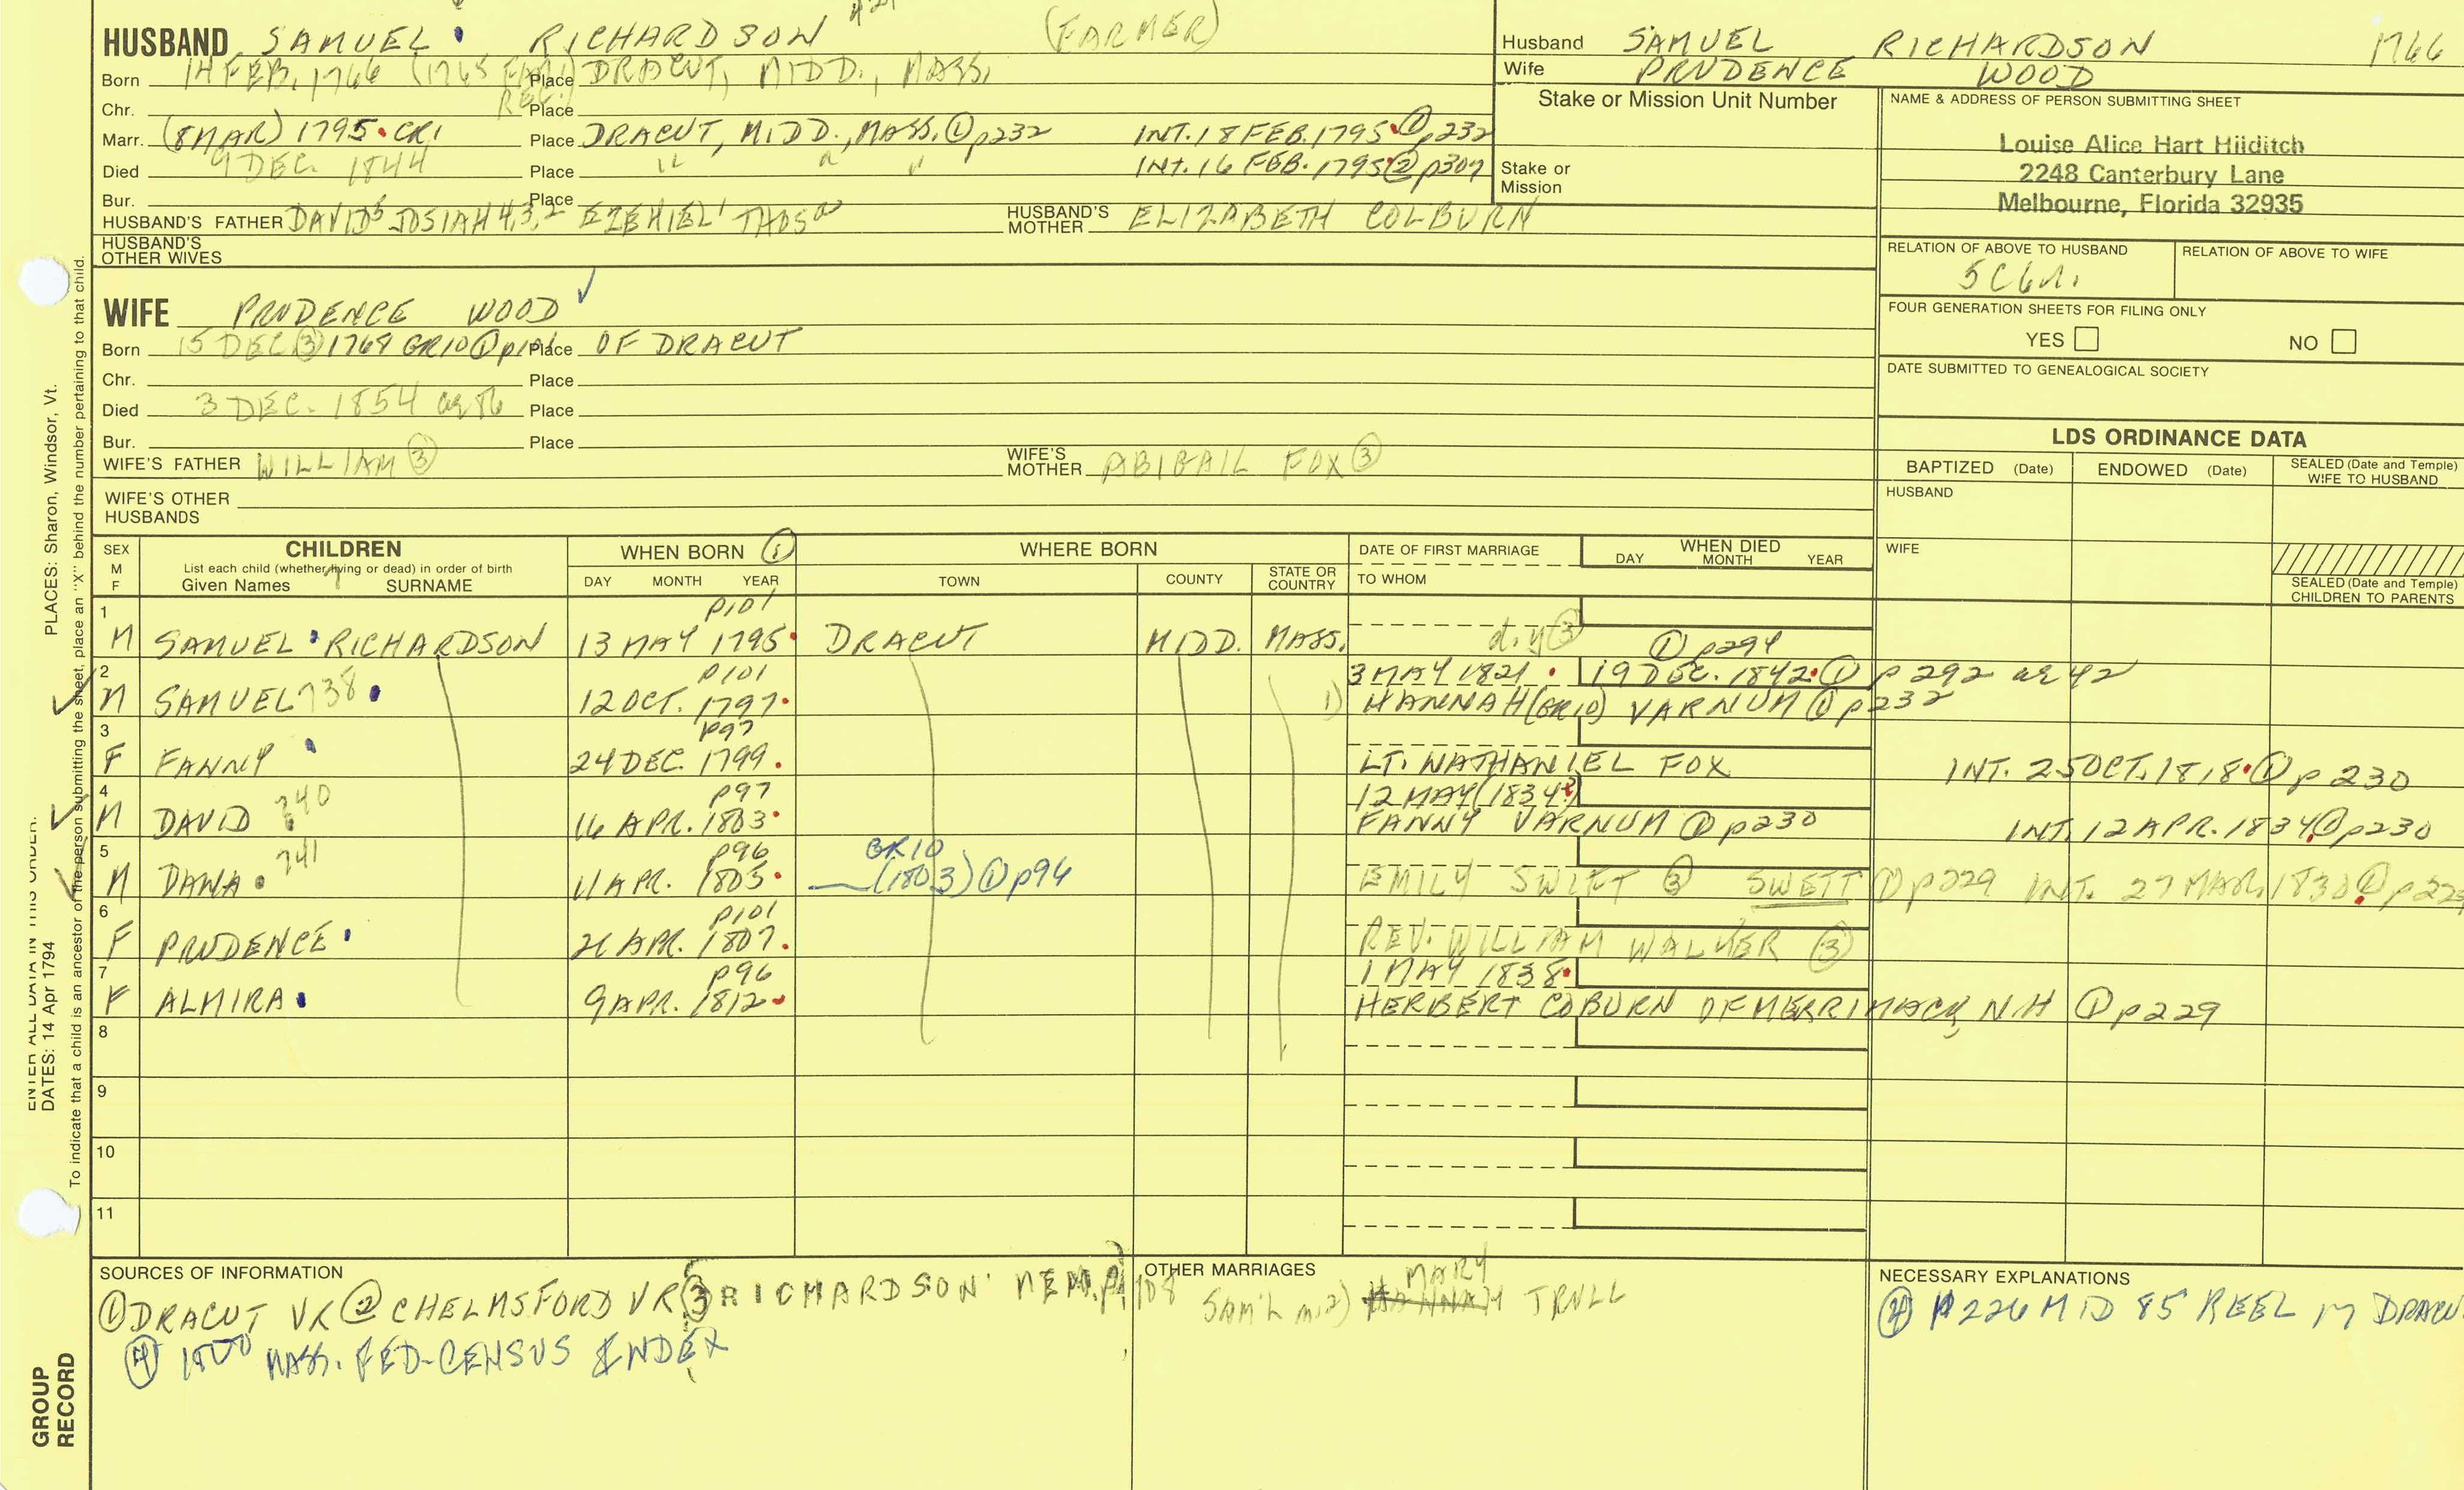 HUSBAND SAMUEL RICHARDSON (FARMER)
Born 14 FEB. 1766 (1765 FAM. REC.) Place DRACUT, MIDD., MASS.
Chr. Place
Marr. (8 MAR) 1795 CR1 Place DRACUT, MIDD., MASS. ① p232 INT. 18 FEB. 1795 ① p232
Died 9 DEC. 1844 Place " " " INT. 16 FEB. 1795 ② p307
Bur. Place
HUSBAND'S FATHER DAVID5 JOSIAH 4,3,2 EZEKIEL1 THOS HUSBAND'S MOTHER ELIZABETH COLBURN
HUSBAND'S OTHER WIVES
Husband SAMUEL RICHARDSON 1766
Wife PRUDENCE WOOD
Stake or Mission Unit Number
Stake or Mission
NAME & ADDRESS OF PERSON SUBMITTING SHEET
Louise Alice Hart Hilditch
2248 Canterbury Lane
Melbourne, Florida 32935
RELATION OF ABOVE TO HUSBAND RELATION OF ABOVE TO WIFE
5C6R.
FOUR GENERATION SHEETS FOR FILING ONLY
YES NO
DATE SUBMITTED TO GENEALOGICAL SOCIETY
WIFE PRUDENCE WOOD
Born 15 DEC ③ 1768 GR10 ① Place OF DRACUT
Chr. Place
Died 3 DEC. 1854 ae 86 Place
Bur. Place
WIFE'S FATHER WILLIAM ③ WIFE'S MOTHER ABIGAIL FOX ③
WIFE'S OTHER HUSBANDS
LDS ORDINANCE DATA
BAPTIZED (Date) ENDOWED (Date) SEALED (Date and Temple) WIFE TO HUSBAND
HUSBAND
WIFE
SEALED (Date and Temple) CHILDREN TO PARENTS
SEX M F CHILDREN List each child (whether living or dead) in order of birth Given Names SURNAME
WHEN BORN ① DAY MONTH YEAR
WHERE BORN TOWN COUNTY STATE OR COUNTRY
DATE OF FIRST MARRIAGE TO WHOM
WHEN DIED DAY MONTH YEAR
1 p101
M SAMUEL RICHARDSON 13 MAY 1795 DRACUT MIDD. MASS. d.y ③ ① p294
2 p101 3 MAY 1821 19 DEC. 1842 ① p292 ae 42
M SAMUEL 738 12 OCT. 1797 1) HANNAH (GR10) VARNUM ① p232
3 p97
F FANNY 24 DEC. 1799 LT. NATHANIEL FOX INT. 25 OCT. 1818 ① p230
4 p97 12 MAY (1834?)
M DAVID 740 16 APR. 1803 FANNY VARNUM ① p230 INT. 12 APR. 1834 ① p230
5 p96 GR10
M DANA 741 11 APR. 1805 (1803) ① p94 EMILY SWIFT ③ SWETT ① p229 INT. 27 MAR. 1830 ①
6 p101
F PRUDENCE APR. 1807 REV. WILLIAM WALKER ③
7 p96 1 MAY 1838
F ALMIRA 9 APR. 1812 HERBERT COBURN OF MERRIMACK N.H ① p229
8
9
10
11
SOURCES OF INFORMATION
① DRACUT VR ② CHELMSFORD VR ③ RICHARDSON MEM. p108
④ 1800 MASS. FED-CENSUS INDEX
OTHER MARRIAGES
MARY
SAM'L m 2) HANNAH TRULL
NECESSARY EXPLANATIONS
④ p226 MID 85 REEL 17
PLACES: Sharon, Windsor, Vt.
ENTER ALL DATA IN THIS ORDER:
DATES: 14 Apr 1794
To indicate that a child is an ancestor of the person submitting the sheet, place an "X" behind the number pertaining to that child.
GROUP RECORD